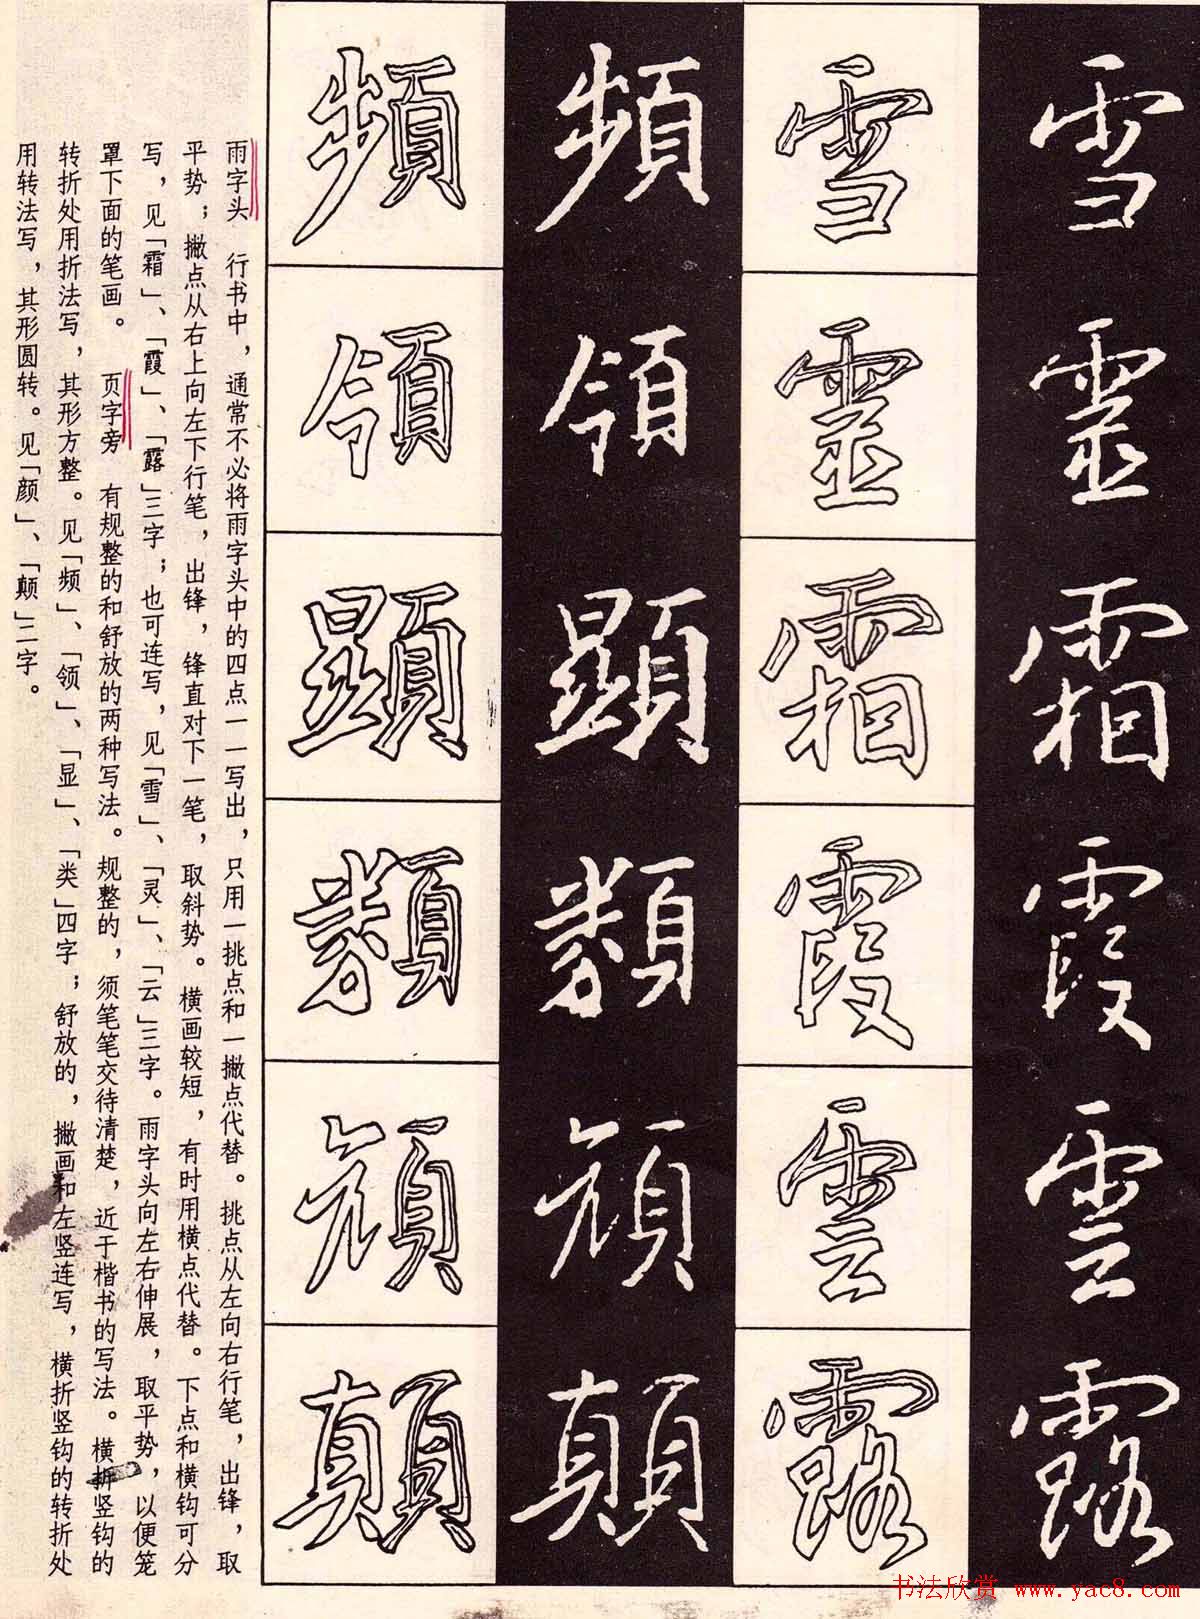 雪霊霜霞雲露
雪霊霜霞雲露
頻領顯類頑顛
頻領顯類頑顛
雨字头　行书中，通常不必将雨字头中的四点一一写出，只用一挑点和一撇点代替。挑点从左向右行笔，出锋，取
平势；撇点从右上向左下行笔，出锋，锋直对下一笔，取斜势。横画较短，有时用横点代替。下点和横钩可分
写，见「霜」、「霞」、「露」三字；也可连写，见「雪」、「灵」、「云」三字。雨字头向左右伸展，取平势，以便笼
罩下面的笔画。　页字旁　有规整的和舒放的两种写法。规整的，须笔笔交待清楚，近于楷书的写法。横折竖钩的
转折处用折法写，其形方整。见「频」、「领」、「显」、「类」四字；舒放的，撇画和左竖连写，横折竖钩的转折处
用转法写，其形圆转。见「颜」、「颠」二字。
书法欣赏 www.yac8.com